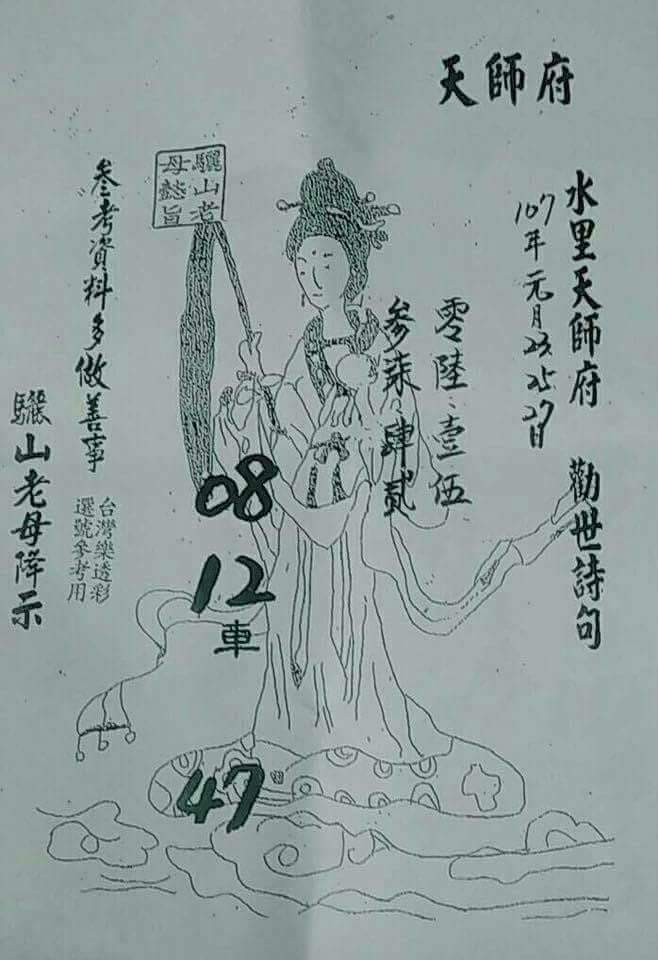 天師府
水里天師府 勸世詩句
107年元月23、25、27日
零陸、壹伍
參柒、肆貳
驪山老
母懿旨
08
12
車
47
參考資料多做善事
台灣樂透彩
選號參考用
驪山老母降示